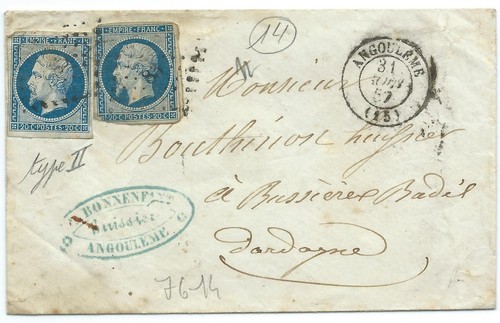 EMPIRE FRANC.
20 C. POSTES 20 C.
EMPIRE FRANC.
20 C. POSTES 20 C.
type II
14
ANGOULEME
31
57
(15)
Monsieur
Bouthinon huissier
à Bussières Badil
Dordogne
BONNENFANT
Huissier
ANGOULEME
7614